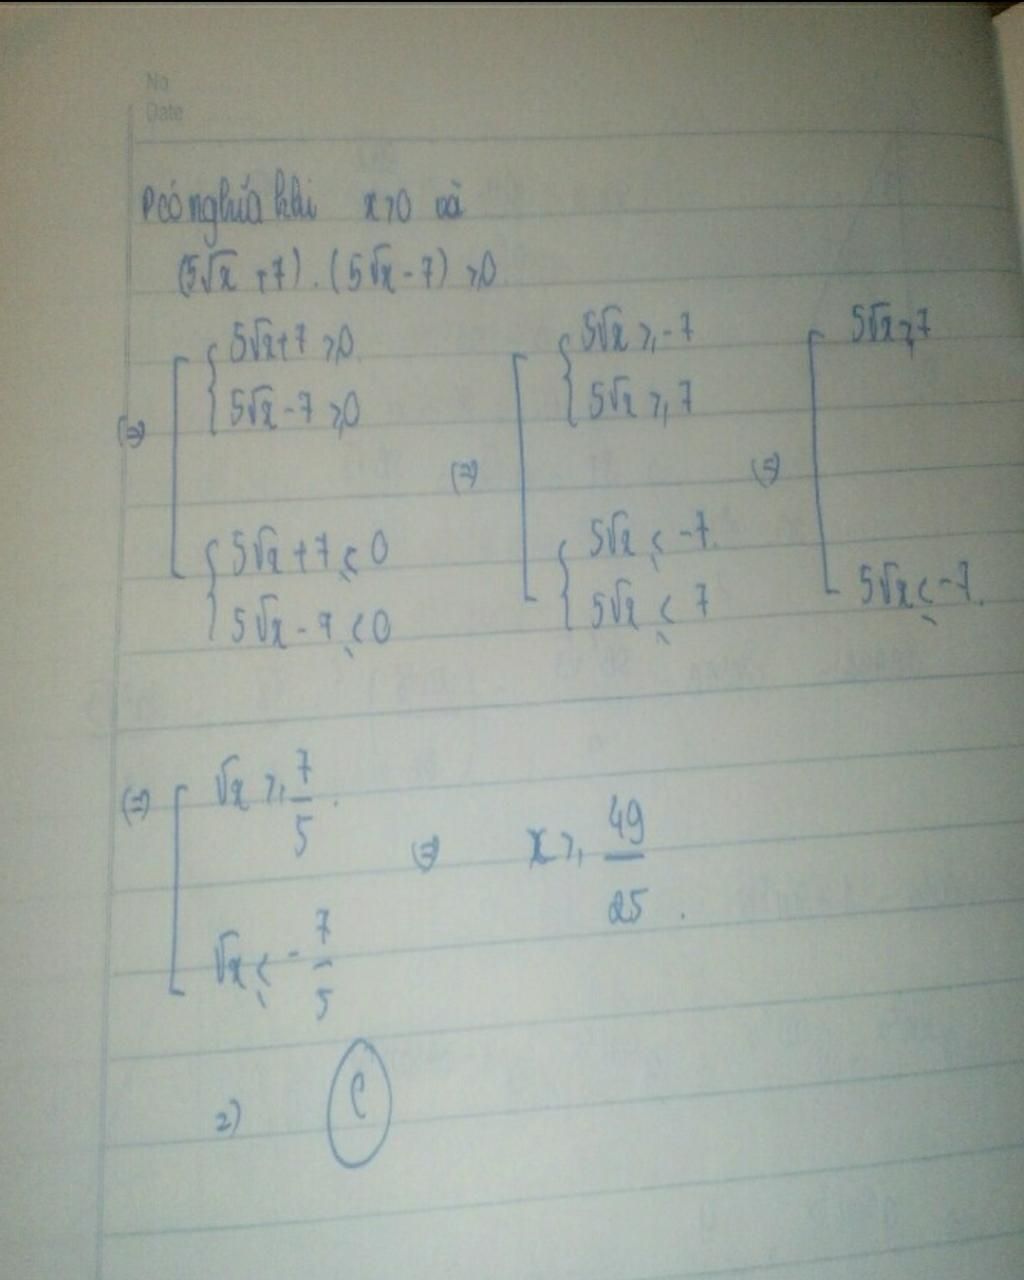 No
Date
P có nghĩa khi x > 0 và
(5√x + 7) . (5√x - 7) ≥ 0
⇔ [ { 5√x + 7 ≥ 0 ; 5√x - 7 ≥ 0 [ { 5√x + 7 ≤ 0 ; 5√x - 7 ≤ 0 ⇔ [ { 5√x ≥ -7 ; 5√x ≥ 7 [ { 5√x ≤ -7 ; 5√x ≤ 7 ⇔ [ 5√x ≥ 7 [ 5√x ≤ -7.
⇔ [ √x ≥ 7/5 . [ √x ≤ -7/5 ⇔ x ≥ 49/25 .
2) C